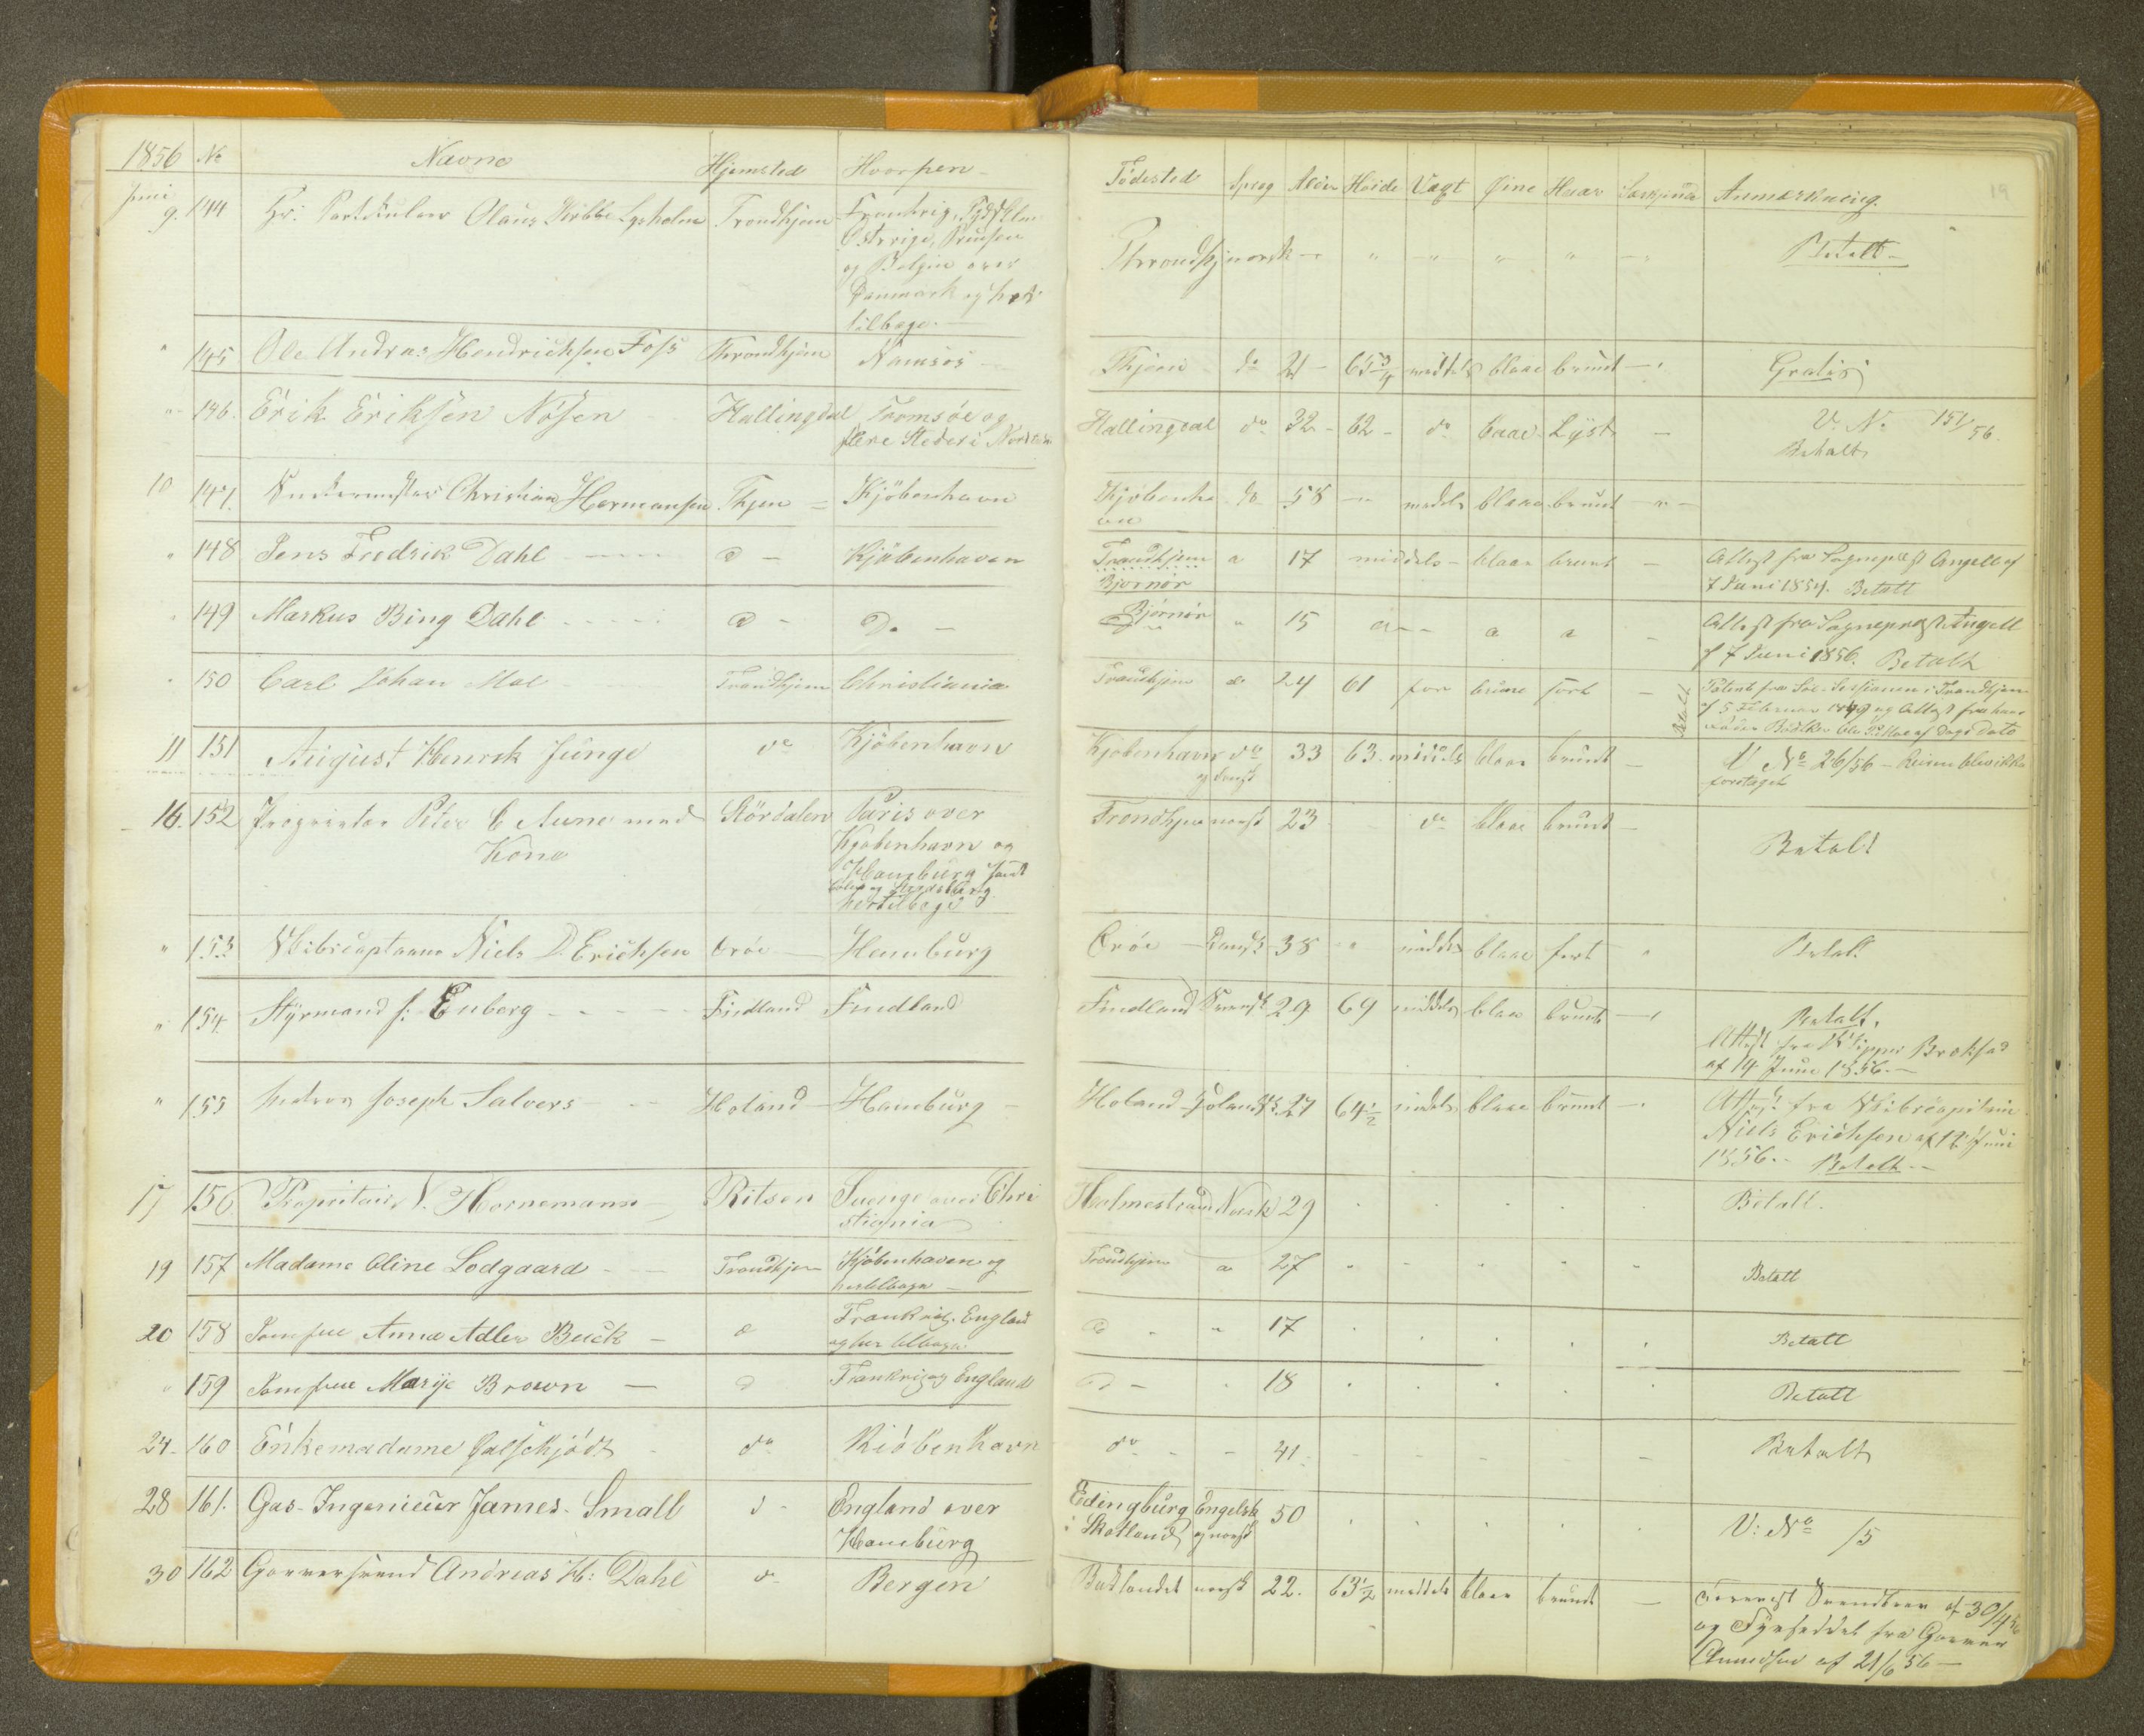 1856 No Navne Hjemsted Hvorhen Födested Sprog Alder Höide Vext Öine Haar Anmærkning. 19
Juni
9. 144 Hr: Partikulær Olaus Lysholm Trondhjem Frankrig,
Østerrige, Preusen
og Belgien over
Danmark og her
tilbage.
Throndhj norsk " " " " " Betalt
" 145 Ole Andreas Hendrichsen Foss Throndhjem Namsos Thjem do 21 65 3/4 middels blaae brunt Gratis
146. Erik Eriksen Nösen Hallingdal Tromsöe og
flere Steder i
Hallingdal do 32 62 do blaae Lyst V. No 151/56.
Betalt
10 147. Christian Hermansen Thjem Kjöbenhavn Kjöbenha
vn
do 58 middels blaae brunt
" 148 Jens Fredrik Dahl d Kjöbenhaven Trondhjem
Bjørnør
a 17 middels blaae brunt Attest fra Sognepræst Angell af
7 Juni 1854. Betalt
149 Markus Bing Dahl d Do Bjørnør " 15 a a a Attest fra Sognepræst Angell
af 7 Juni 1856. Betalt
150 Carl Johan Moe Trondhjem Christiania Trondhjem do 24 61 for brune sort Betalt
Patent fra Söe-Sessionen i Trondhjem
af 5 Februar 1849 og Attest fra hans
af Dags Dato
11 151 August Henrik Junge do Kjöbenhavn Kjöbenhavn do
og dansk
33 63 middels blaae brunt V No 26/56 - Reisen blev ikke
foretaget
16. 152 Proprietær Peter C Aune med
Kone
Stördalen Paris over
Kjøbenhavn og
Hamburg samt
hertilbage
Trondhjem norsk 23 do blaae brunt Betalt
" 153 Skibscaptaine Niels D. Erichsen Ærøe Hamburg Ærøe Dansk 38 middels blaae sort Betalt
" 154. Styrmand J: Enberg Findland Findland Findland Svensk 29 69 middels blaae brunt Betalt.
Attest fra Skipper
af 14 Juni 1856.
" 155 Joseph Salvers Holand Hamburg Holand 27 64 1/2 middels blaae brunt Attest fra Skibscapitain
Niels Erichsen af 12 Juni
1856. Betalt
17 156 Propritair N. Hornemann Ritsen Sverige over Chri
stiania
Holmestrand Norsk 29 Betalt.
19 157 Madame Oline Lodgaard Trondhjem Kjöbenhaven og
hertilbage
Trondhjem a 27 Betalt
20 158 Jomfrue Anna Adler Buck d Frankrig, England
og her tilbage
d " 17 Betalt
159 Jomfrue Marije Brown d Frankrig og England d 18 Betalt
24 160 Enkemadame do Kiöbenhavn do 41 Betalt
28 161. Gas-Ingenieur James Small d England over
Hamburg
Edingburg
i Skotland
Engelsk
og norsk
50 V: No 15
30 162 Garversvend Andreas H: Dahl do Bergen Baklandet norsk 22. 63 1/2 middels blaae brunt Svendbrev af 30/4 56
og fra Garver
af 21/6 56